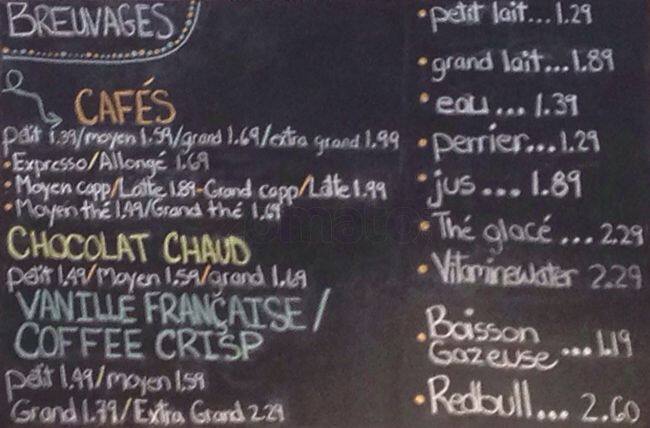 BREUVAGES
CAFÉS
petit 1.39/moyen 1.59/grand 1.69/extra grand 1.99
• Expresso/Allongé 1.69
• Moyen capp/Latte 1.89-Grand capp/Latte 1.99
• Moyen thé 1.49/Grand thé 1.69
CHOCOLAT CHAUD
petit 1.49/Moyen 1.59/grand 1.69
VANILLE FRANÇAISE/
COFFEE CRISP
petit 1.49/moyen 1.59
Grand 1.79/Extra Grand 2.29
• petit lait... 1.29
• grand lait... 1.89
• eau... 1.39
• perrier... 1.29
• jus... 1.89
• Thé glacé... 2.29
• Vitaminewater 2.29
• Boisson
Gazeuse... 1.19
• Redbull... 2.60